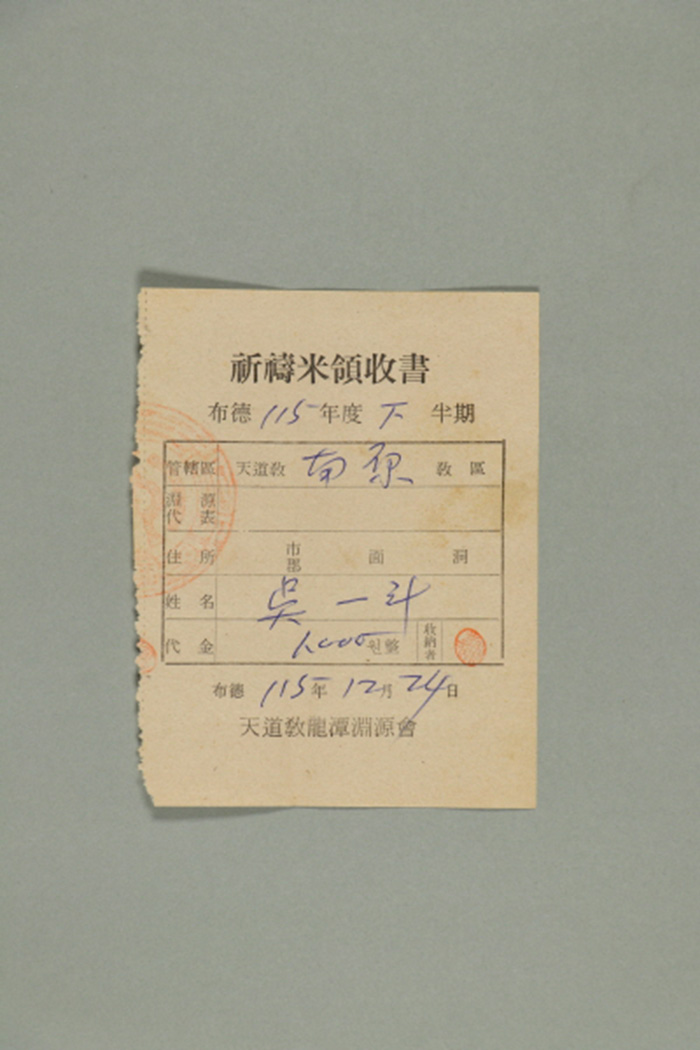 祈禱米領收書
布德 115 年度 下 半期
管轄區 天道敎 南原 敎區
淵源代表
住所 市郡 面 洞
姓名 吳一斗
代金 1,000 원整 收納者
布德 115年 12月 24日
天道敎龍潭淵源會